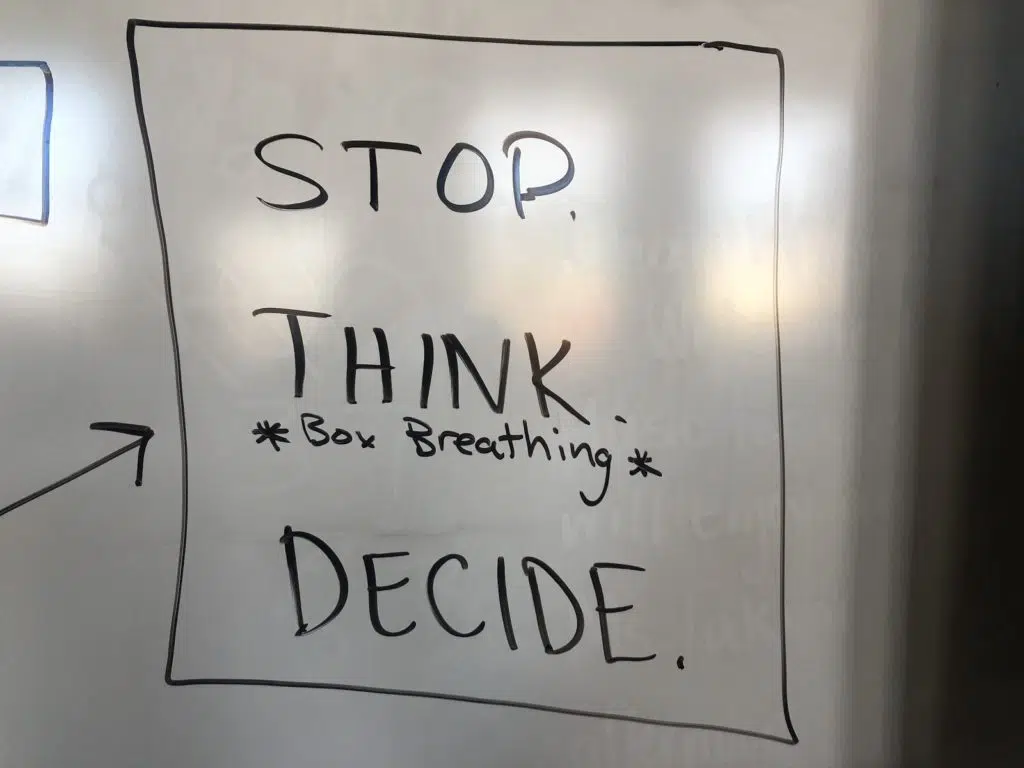 STOP.
THINK.
*Box Breathing*
DECIDE.